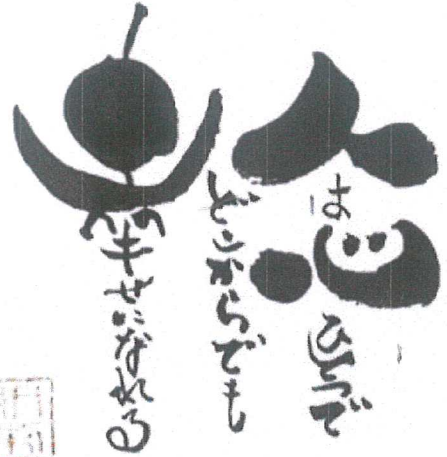 人は心ひとつで
どこからでも
幸せになれる